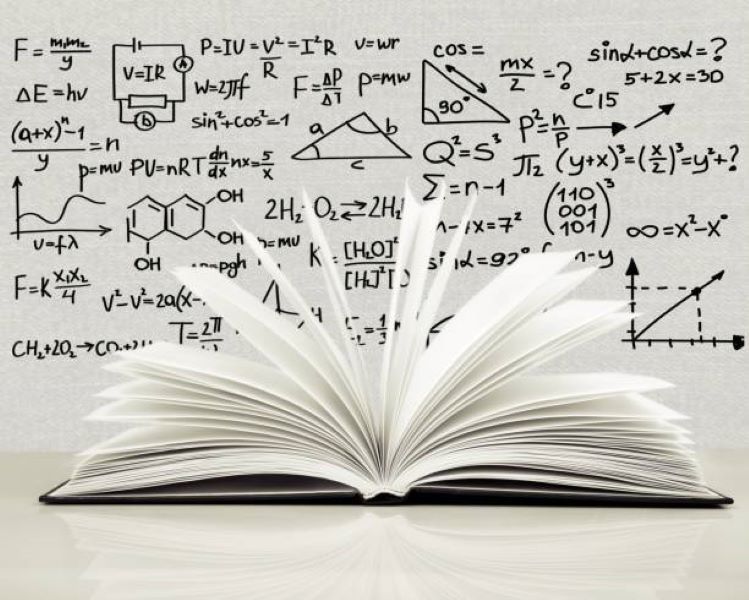 F = m₁m₂/y
V=IR
A
P=IU=V²/R=I²R
v=wr
cos=
mx/2 =?
sinα+cosα=?
5+2x=30
ΔE=hv
W=2πf
F=ΔP/ΔT
p=mw
90°
C 15
(a+x)ⁿ-1/y = n
sin²+cos²=1
a
b
c
Q²=S³
P²=n/P
p=mu
PU=nRT
dn/dx
nx=5/x
π₂
(y+x)³=(x/2)³=y²+?
Σ=n-1
OH
OH
OH
2H₂
O₂⇄2H₂
x=7²
(110
001
101)³
∞=x²-x°
υ=fλ
p=mu
pgh
K
[H₂O]²
[H₂]²
sinα=92°
n-y
F=K x₁x₂/4
V²-V²=2a(x-
T=2π
CH₂+2O₂→CO₂+2H